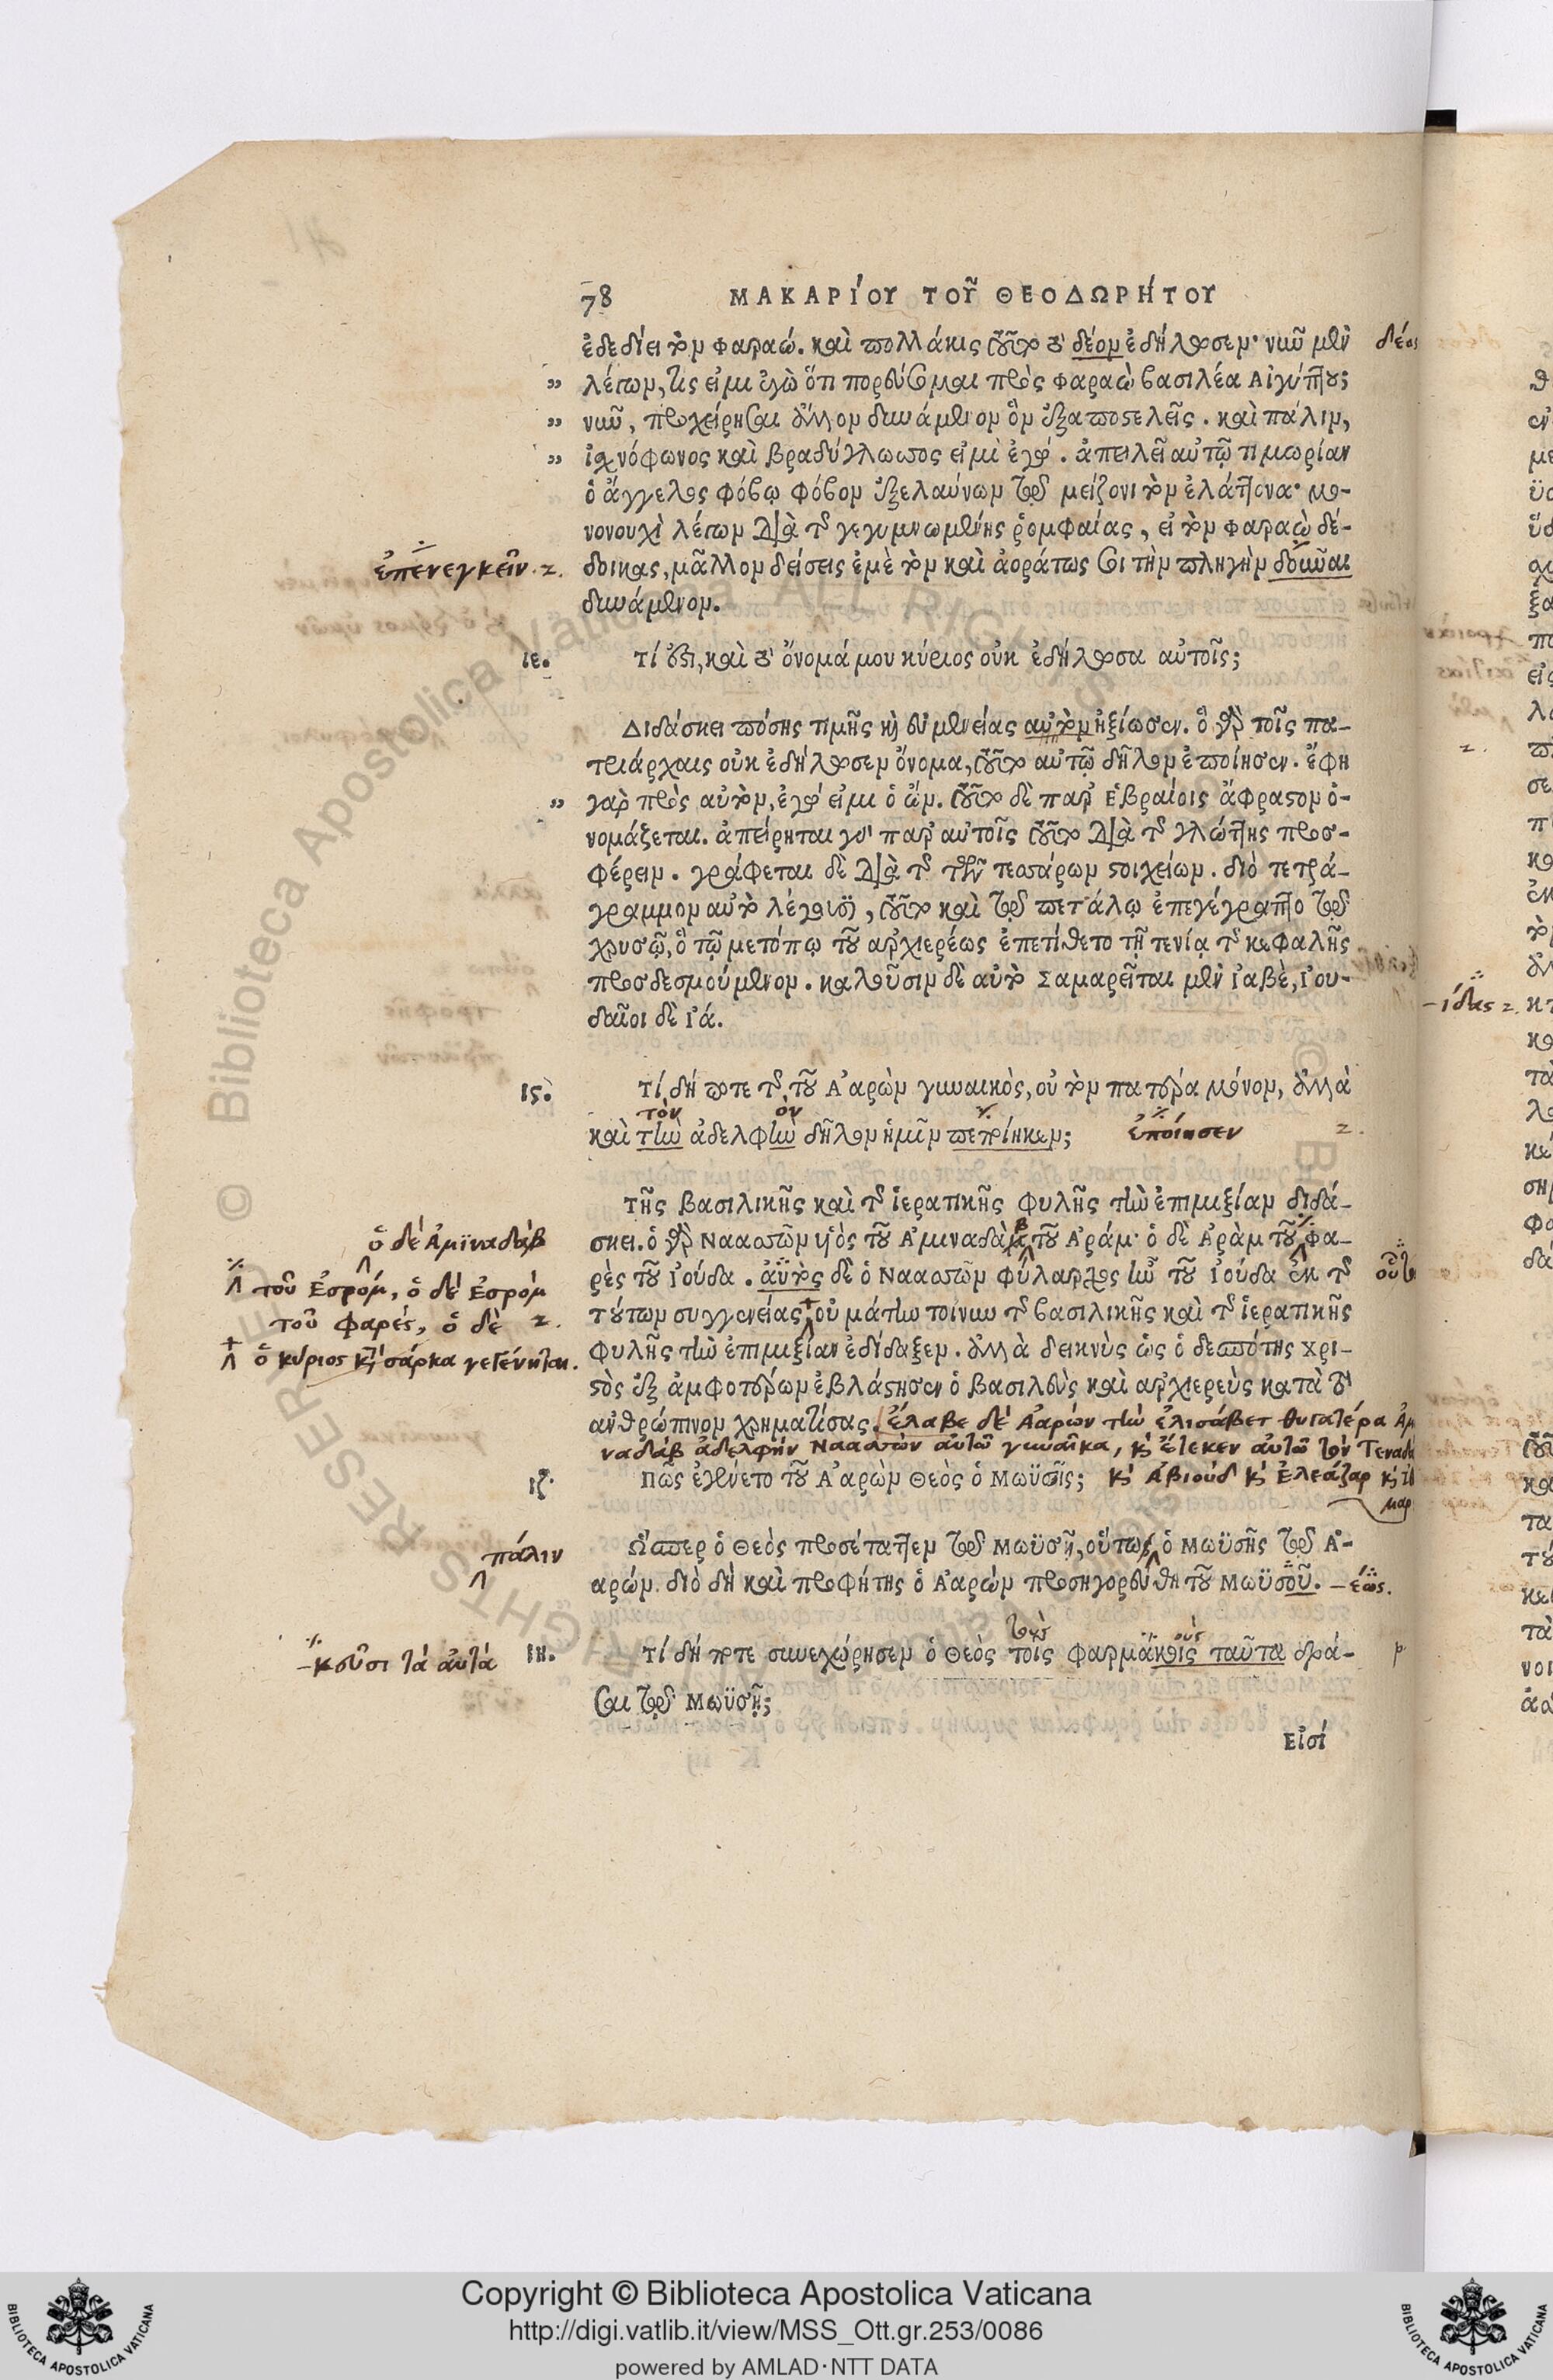 78 ΜΑΚΑΡΊΟΥ ΤΟΥ͂ ΘΕΟΔΩΡΉΤΟΥ
ἐδεδίει τὸν φαραώ. καὶ πολλάκις τοῦτο τὸ δέον ἐδήλωσεν· νῦν μὲν
„ λέγων, τίς εἰμι ἐγὼ ὅτι πορεύσομαι πρὸς φαραὼ βασιλέα Αἰγύπτου;
„ νῦν, προχείρησαι ἄλλον δυνάμενον ὃν ἐξαποστελεῖς. καὶ πάλιν,
„ ἰσχνόφωνος καὶ βραδύγλωσσος εἰμὶ ἐγώ. ἀπειλεῖ αὐτῷ τιμωρίαν
ὁ ἄγγελος φόβῳ φόβον ἐξελαύνων τῷ μείζονι τὸν ἐλάττονα· μο-
νονουχὶ λέγων διὰ τῆς γεγυμνωμένης ῥομφαίας, εἰ τὸν φαραὼ δέ-
ἐπενεγκεῖν. 2.
δοικας, μᾶλλον δείσεις ἐμὲ τὸν καὶ ἀοράτως σοι τὴν πληγὴν δοῦναι
δυνάμενον.
ιε. Τί ἐστι, καὶ τὸ ὄνομά μου κύριος οὐκ ἐδήλωσα αὐτοῖς;
Διδάσκει πόσης τιμῆς καὶ εὐμενείας αὐτὸν ἠξίωσεν. ὃ γὰρ τοῖς πα-
τριάρχαις οὐκ ἐδήλωσεν ὄνομα, τοῦτο αὐτῷ δῆλον ἐποίησεν. ἔφη
„ γὰρ πρὸς αὐτὸν, ἐγώ εἰμι ὁ ὤν. τοῦτο δὲ παρ' Ἑβραίοις ἄφραστον ὀ-
νομάζεται. ἀπείρηται γὰρ παρ' αὐτοῖς τοῦτο διὰ τῆς γλώττης προσ-
φέρειν. γράφεται δὲ διὰ τῶν τεσσάρων στοιχείων. διὸ τετρά-
γραμμον αὐτὸ λέγουσι, τοῦτο καὶ τῷ πετάλῳ ἐπεγέγραπτο τῷ
χρυσῷ, ὃ τῷ μετόπῳ τοῦ ἀρχιερέως ἐπετίθετο τῇ τενίᾳ τῆς κεφαλῆς
προσδεσμούμενον. καλοῦσιν δὲ αὐτὸ Σαμαρεῖται μὲν ἰαβὲ, Ἰου-
δαῖοι δὲ ἰά.
ις. Τί δή ποτε τῆς τοῦ Ἀαρὼν γυναικὸς, οὐ τὸν πατέρα μόνον, ἀλλὰ
τὸν ὸν
καὶ τὴν ἀδελφὴν δῆλον ἡμῖν πεποίηκεν; ἐποίησεν 2.
Τῆς βασιλικῆς καὶ τῆς ἱερατικῆς φυλῆς τὴν ἐπιμιξίαν διδά-
ὁ δὲ Ἀμϊναδάβ
σκει. ὁ γὰρ Ναασσὼν υἱὸς τοῦ Ἀμιναδὰμ, τοῦ Ἀράμ· ὁ δὲ Ἀρὰμ τοῦ Φα-
τοῦ Ἐσρόμ, ὁ δὲ Ἐσρόμ
ρὲς τοῦ Ἰούδα. αὐτὸς δὲ ὁ Ναασσὼν φύλαρχος ἦν τοῦ Ἰούδα ἐκ τῆς
τοῦ Φαρές, ὁ δὲ 2.
τούτων συγγενείας οὐ μάτην τοίνυν τῆς βασιλικῆς καὶ τῆς ἱερατικῆς
ὁ κύριος κ̀ σάρκα γεγένηται.
φυλῆς τὴν ἐπιμιξίαν ἐδίδαξεν. ἀλλὰ δεικνὺς ὡς ὁ δεσπότης χρι-
στὸς ἐξ ἀμφοτέρων ἐβλάστησεν ὁ βασιλεὺς καὶ ἀρχιερεὺς κατὰ τὸ
ἀνθρώπινον χρηματίσας. ἔλαβε δὲ Ἀαρὼν τὴν ἐλισάβετ θυγατέρα Ἀμ
ναδάβ ἀδελφὴν Ναασσὼν αὐτῶ γυναῖκα, κ̀ ἔτεκεν αὐτῶ τὸν
ιζ. Πῶς ἐγένετο τοῦ Ἀαρὼν θεὸς ὁ Μωϋσῆς; κ̀ Ἀβιούδ κ̀ Ἐλεάζαρ κ̀
μαρ
Ὥσπερ ὁ θεὸς προσέταττεν τῷ Μωϋσῇ, οὕτως ὁ Μωϋσῆς τῷ Ἀ-
πάλιν
αρών. διὸ δὴ καὶ προφήτης ὁ Ἀαρὼν προσηγορεύθη τοῦ Μωϋσοῦ. –έως.
–κοῦσι τὰ αὐτὰ
ιη. Τί δή ποτε συνεχώρησεν ὁ θεὸς τοῖς φαρμακοῖς ταῦτα δρά-
σαι τῷ Μωϋσῇ;
Εἰσί
–ίδας 2.
Copyright © Biblioteca Apostolica Vaticana
http://digi.vatlib.it/view/MSS_Ott.gr.253/0086
powered by AMLAD·NTT DATA